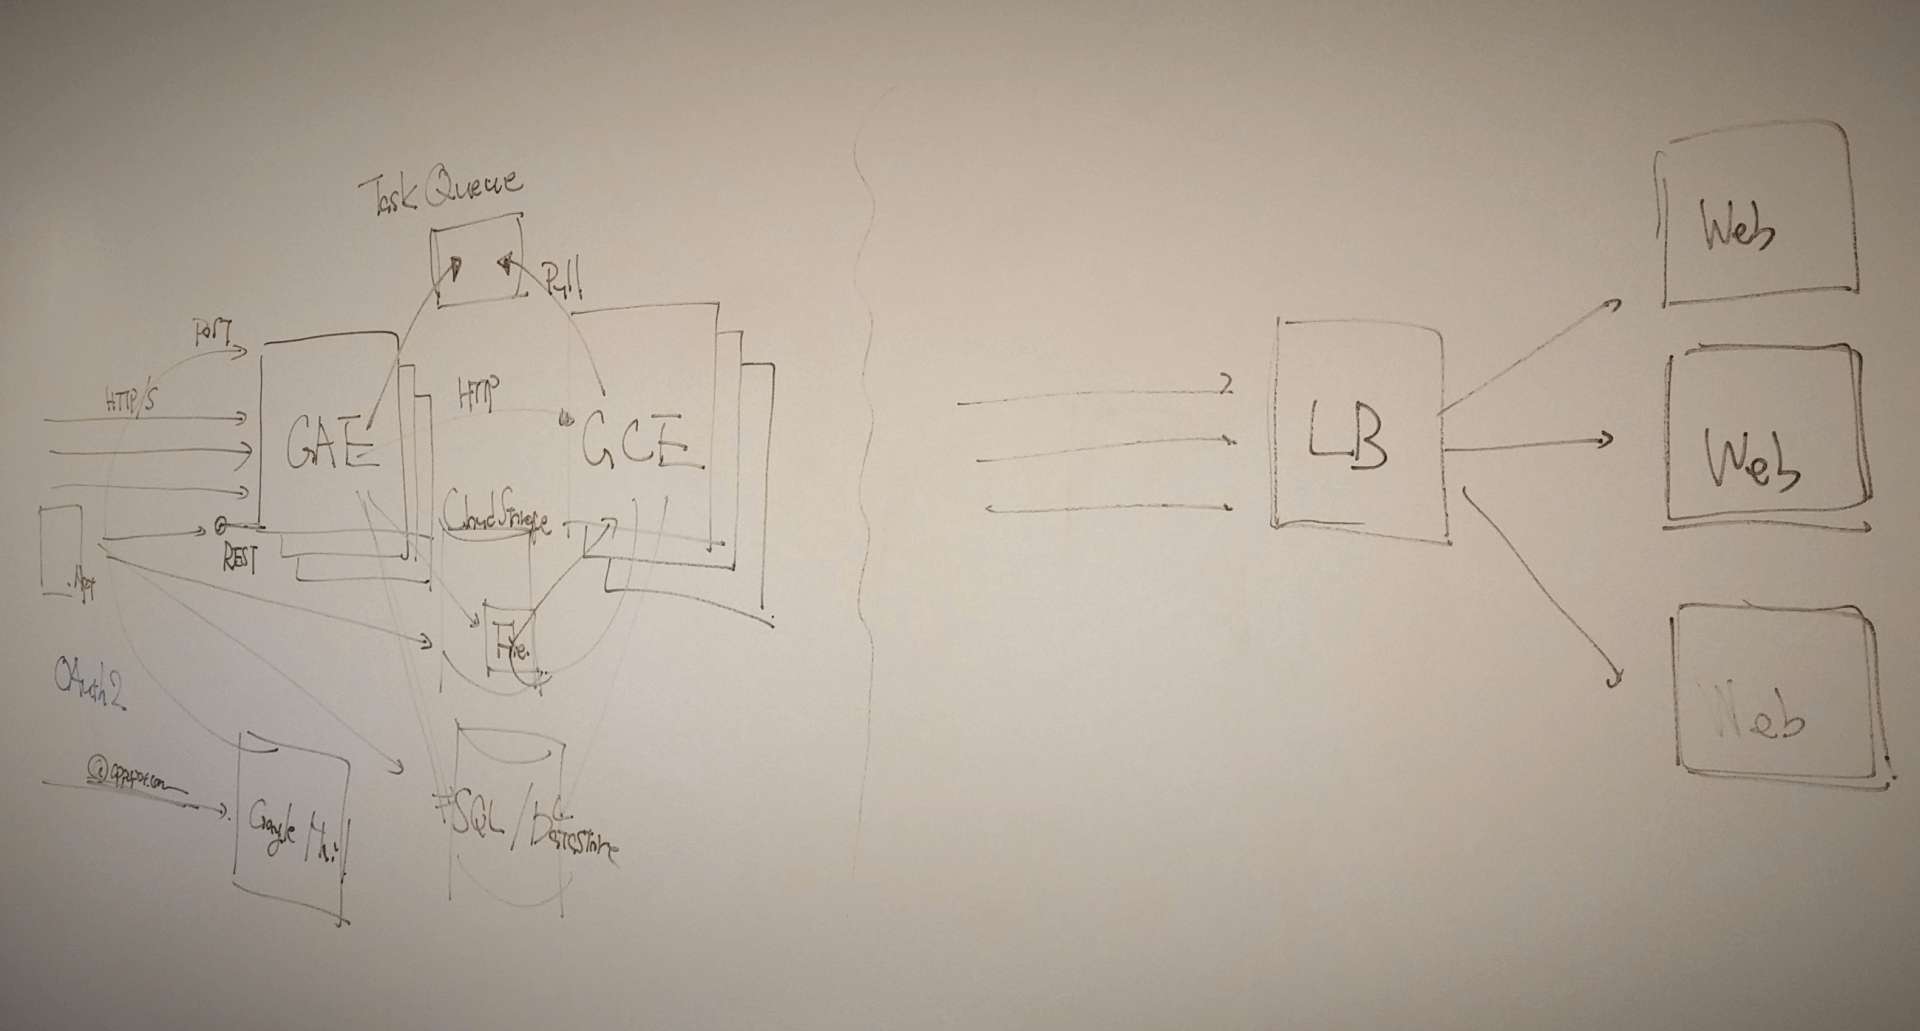 Task Queue
Pull
POST
HTTP/S
HTTP
GAE
GCE
Cloud Storage
REST
App
File
OAuth2
@appspot.com
Google Mail
SQL / Datastore
LB
Web
Web
Web